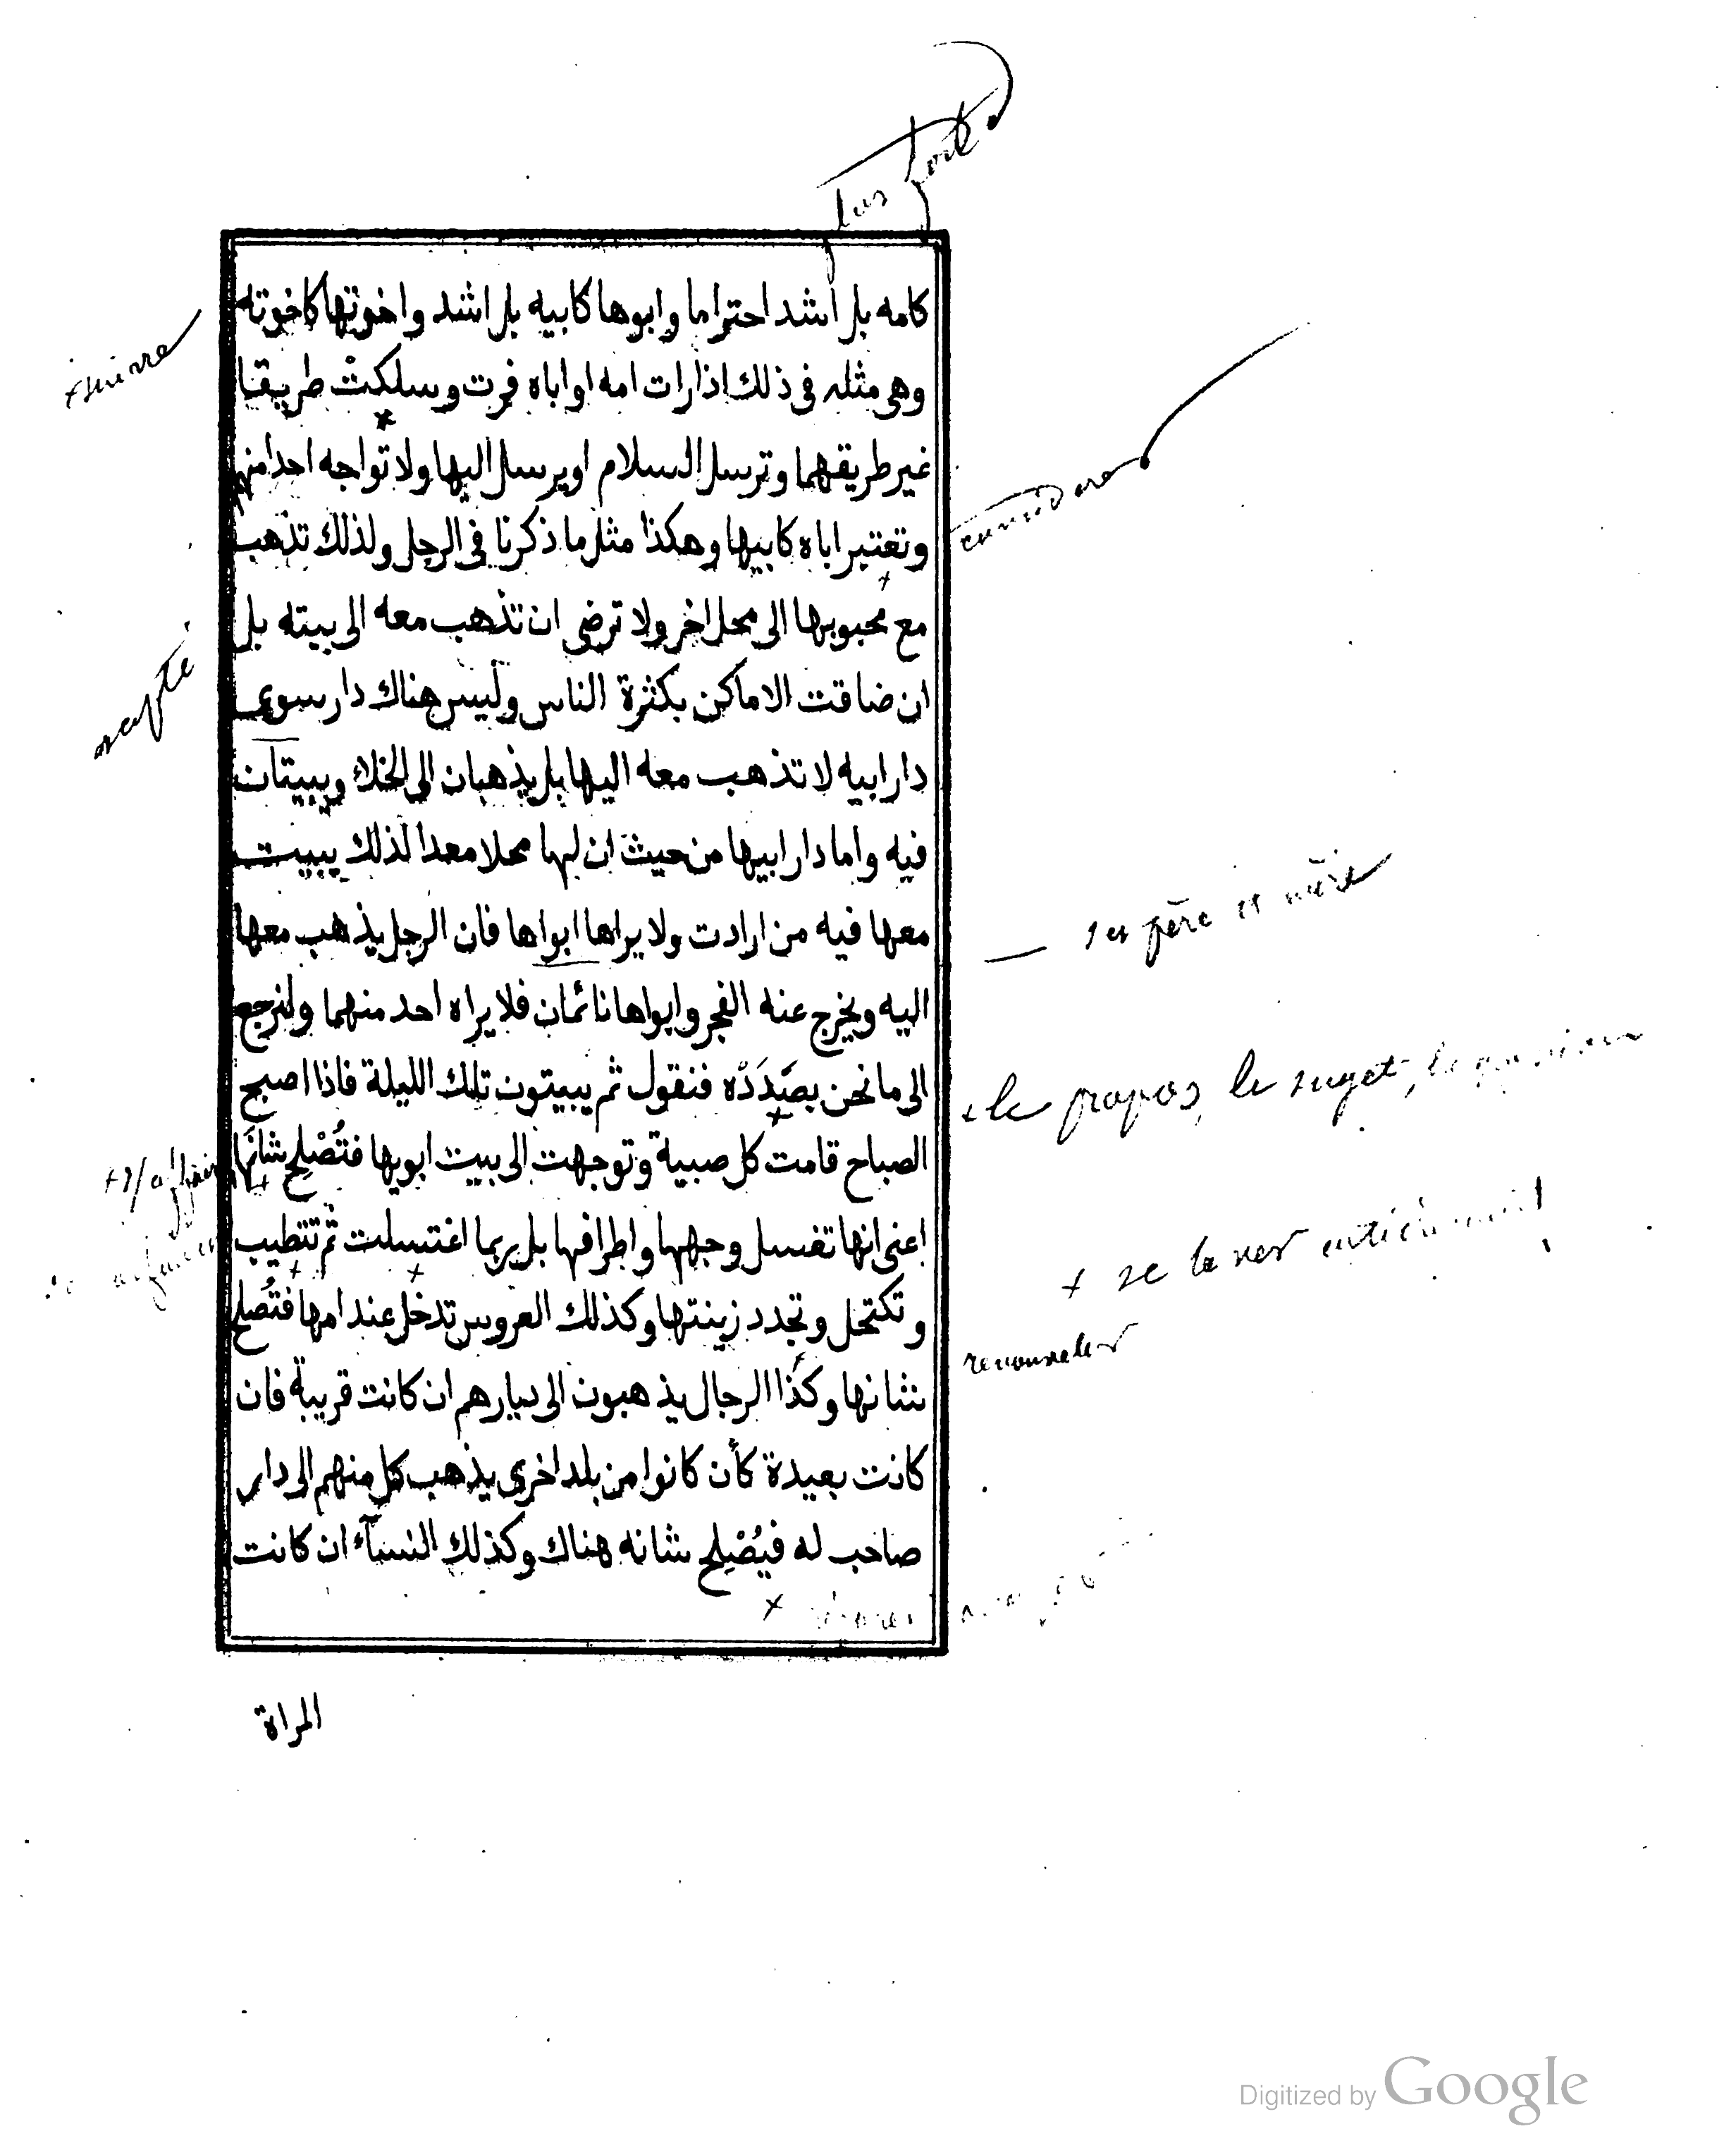 plus fort
كامه بل اشد احتراما وابوها كابيه بل اشد واخوتها كاخوته
+ suivre
وهى مثله فى ذلك اذا رات امه او اباه فرت وسلكتْ طريقا
غير طريقهما وترسل السلام او يرسل اليها ولا تواجه احدا منهم
considérer
وتعتبر اباه كابيها وهكذا مثل ما ذكرنا فى الرجل ولذلك تذهب
مع محبوبها الى محل اخر ولا ترضى ان تذهب معه الى بيته بل
excepté
ان ضاقت الاماكن بكثرة الناس وليس هناك دار سوى
دار ابيه لا تذهب معه اليها بل يذهبان الى الخلاء ويبيتان
فيه واما دار ابيها من حيث ان لها محلا معدا لذلك يبيت
معها فيه من ارادت ولا يراها ابواها فان الرجل يذهب معها
— ses père et mère
اليه ويخرج عنه الفجر وابواها نائمان فلا يراه احد منهما ولنرجع
الى ما نحن بصَدَدَدْه فنقول ثم يبيتون تلك الليلة فاذا اصبح
+ le propos, le sujet,
الصباح قامت كل صبية وتوجهت الى بيت ابويها فتُصْلِح شانَها
اعنى انها تغسل وجهها واطرافها بل بربما اغتسلت ثم تتطيب
+ se laver entièrement
وتكتحل وتجدد زينتها وكذلك العروس تدخل عند امها فتُصلح
renouveler
شانها وكذا الرجال يذهبون الى ديارهم ان كانت قريبة فان
كانت بعيدة كأن كانوا من بلد اخرى يذهب كل منهم الى دار
صاحب له فيُصْلِح شانه هناك وكذلك النسآء ان كانت
المراة
Digitized by Google